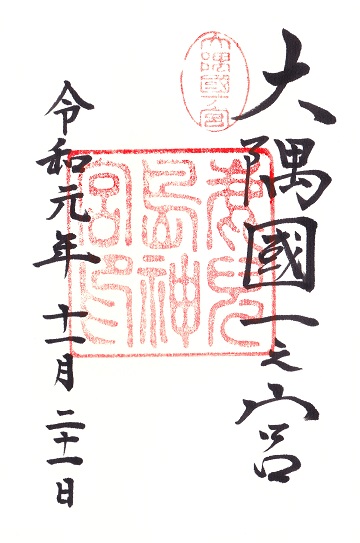 大隅國一之宮
大隅國一宮
鹿兒島神宮印
令和元年十一月二十一日